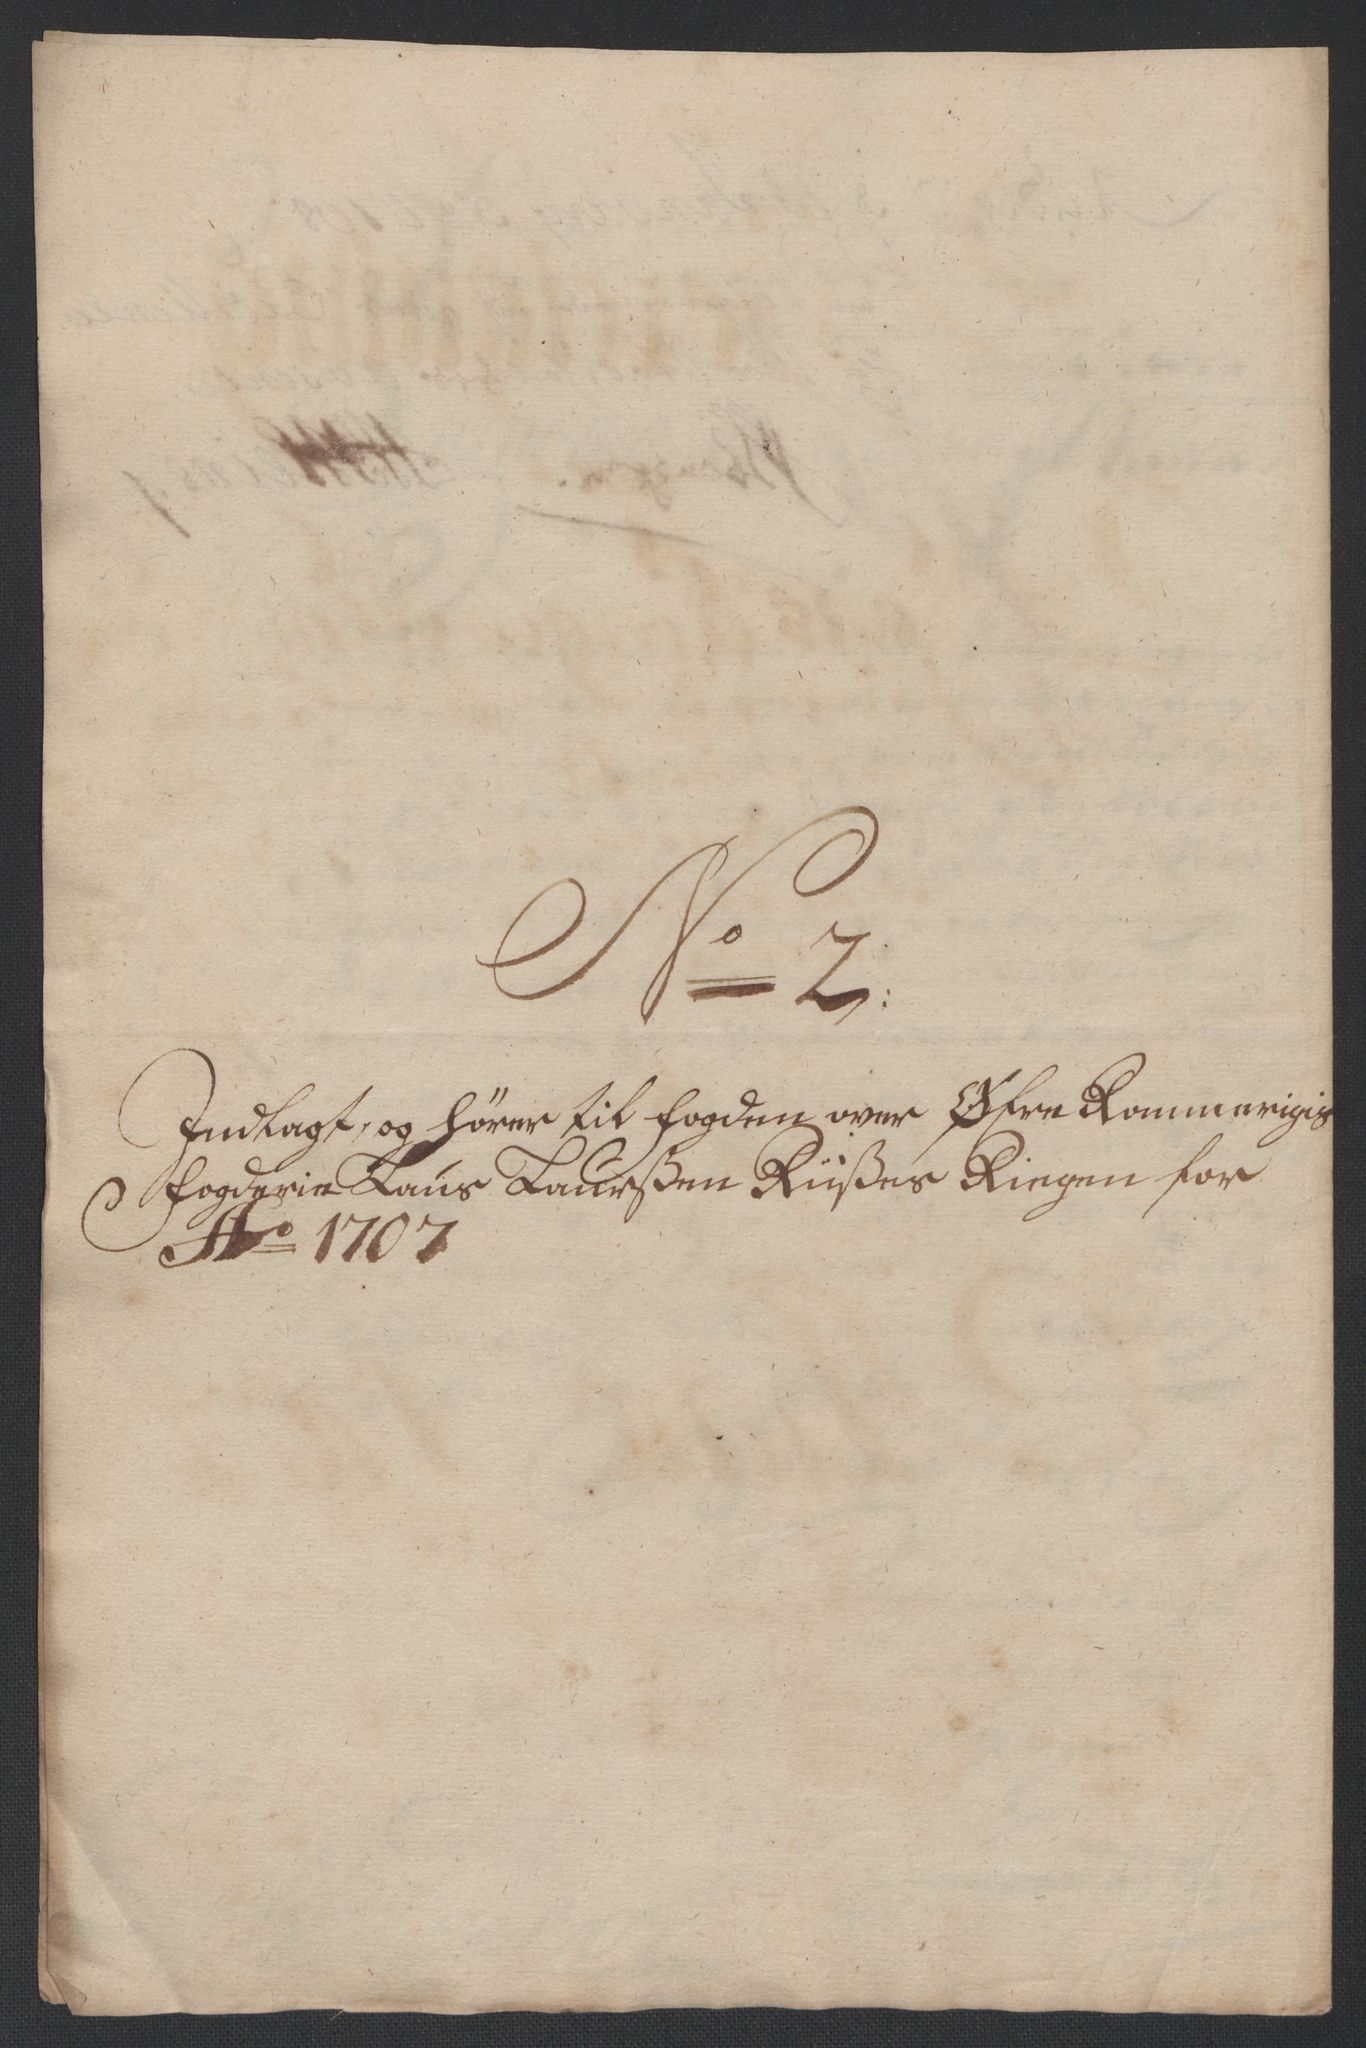 No 2:
Indlagt, og hører til fogden over Øfre Rommerigis
fogderie Laus Laurßen Rüßes Riegen for
Ao 1707